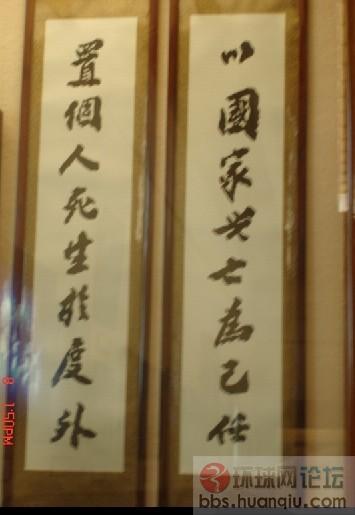 以國家兴亡為己任
置個人死生於度外
8 1:50PM
环球网论坛
bbs.huanqiu.com